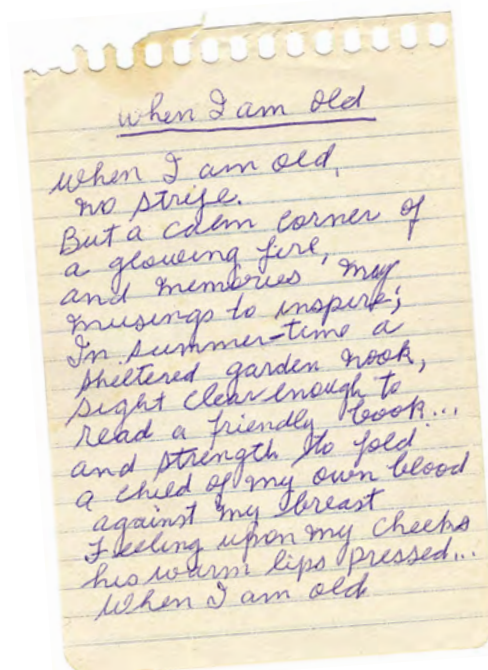 When I am old
When I am old,
no strife.
But a calm corner of
a glowing fire,
and memories, my
musings to inspire;
In summer-time a
sheltered garden nook,
sight clear enough to
read a friendly book...
and strength to fold
a child of my own blood
against my breast
Feeling upon my cheeks
his warm lips pressed...
When I am old